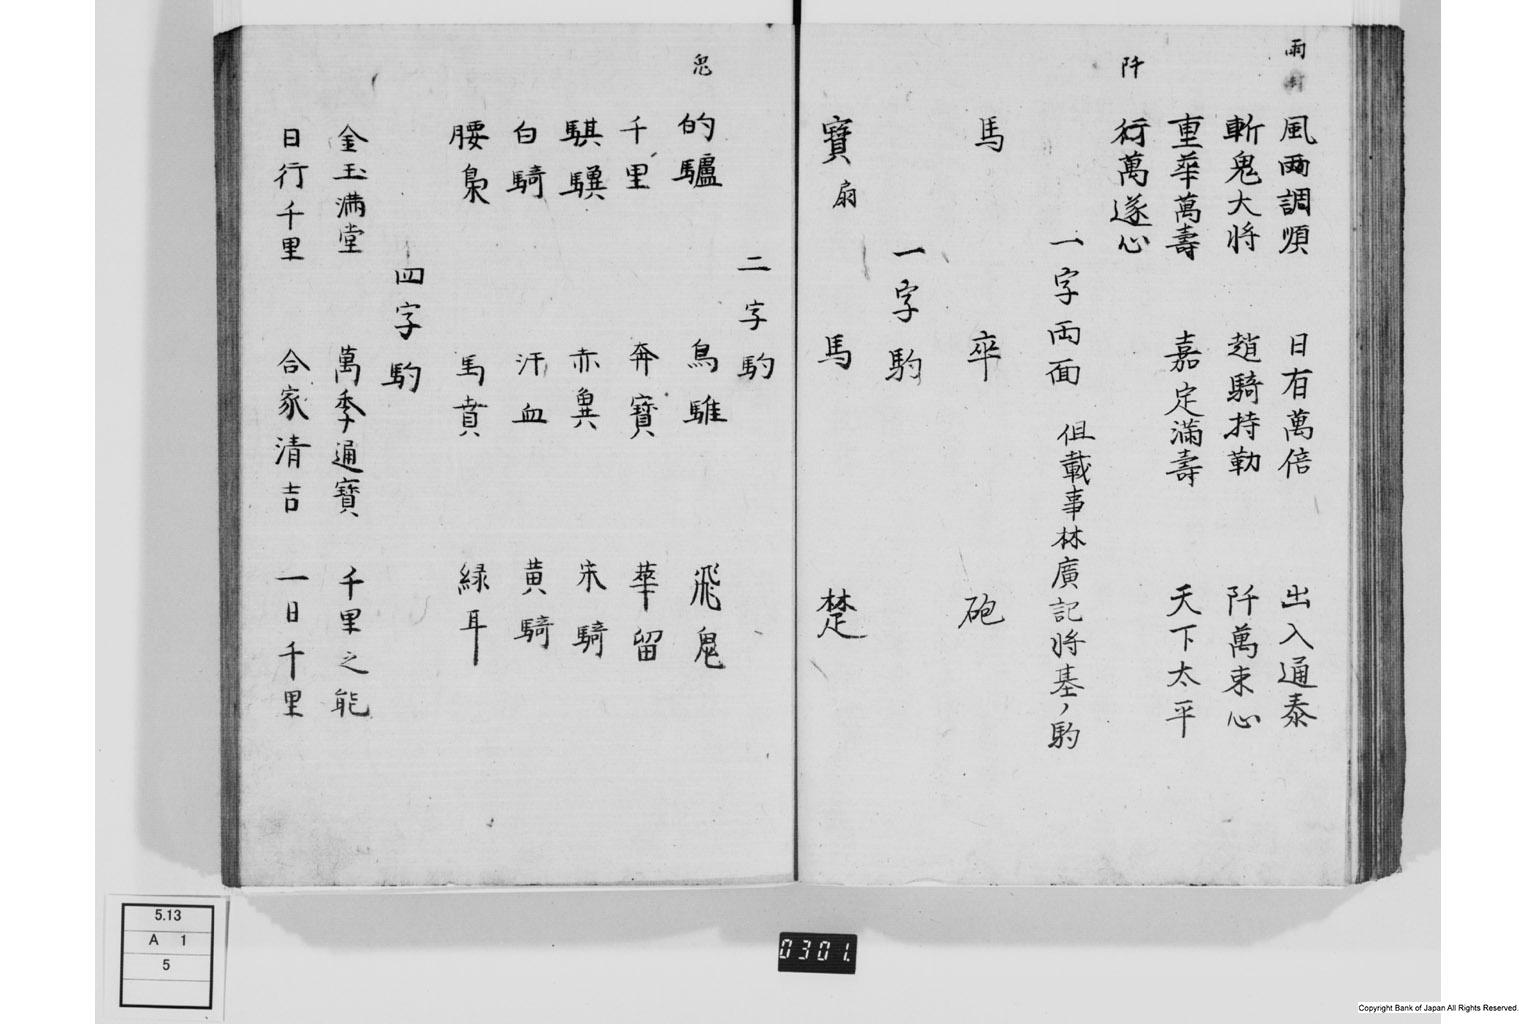 雨
風雨調順 日有萬倍 出入通泰
斬鬼大将 趙騎持勒 阡萬束心
重華萬壽 嘉定滿壽 天下太平
阡
行萬遂心
一字両面 但載事林廣記将基ノ馰
馬 卒 砲
一字馰
寶扇 馬 楚
二字馰
鬼
的驢 烏騅 飛鬼
千里 奔寶 華留
騏驥 赤兎 朱騎
白騎 汗血 黄騎
腰梟 馬賁 緑耳
四字馰
金玉満堂 萬季通寶 千里之能
日行千里 合家清吉 一日千里
5.13
A 1
5
0301.
Copyright Bank of Japan All Rights Reserved.